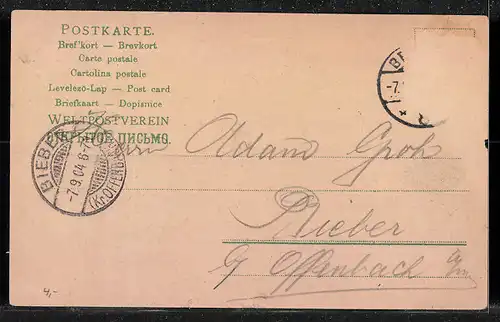 POSTKARTE.
Bref'kort — Brevkort
Carte postale
Cartolina postale
Levelező-Lap — Post card
Briefkaart — Dopisnice
WELTPOSTVEREIN
ОТКРЫТОЕ ПИСЬМО.
BIEBER
-7.9.04.6-7
(Kr. OFFENB
BE
-7.
Adam Groh
Bieber
Offenbach a/m
4,-